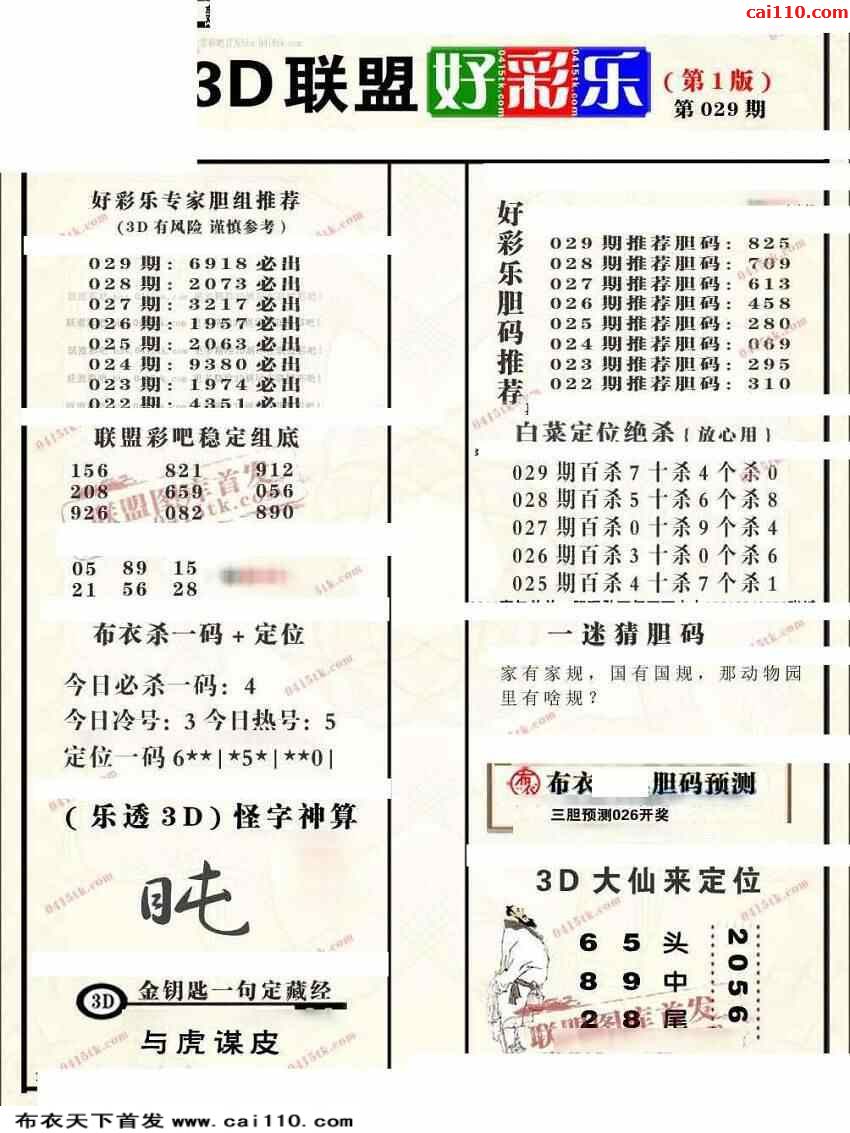 cai110.com
3D联盟好彩乐
(第1版)
第029期
好彩乐专家胆组推荐
(3D有风险 谨慎参考)
029期: 6918必出
028期: 2073必出
027期: 3217必出
026期: 1957必出
025期: 2063必出
024期: 9380必出
023期: 1974必出
022期: 4351必出
联盟彩吧稳定组底
156 821 912
208 659 056
926 082 890
05 89 15
21 56 28
布衣杀一码+定位
今日必杀一码: 4
今日冷号: 3 今日热号: 5
定位一码 6**|*5*|**0|
(乐透3D)怪字神算
3D 金钥匙一句定藏经
与虎谋皮
好彩乐胆码推荐
029期推荐胆码: 825
028期推荐胆码: 709
027期推荐胆码: 613
026期推荐胆码: 458
025期推荐胆码: 280
024期推荐胆码: 069
023期推荐胆码: 295
022期推荐胆码: 310
白菜定位绝杀{放心用}
029期百杀7十杀4个杀0
028期百杀5十杀6个杀8
027期百杀0十杀9个杀4
026期百杀3十杀0个杀6
025期百杀4十杀7个杀1
一迷猜胆码
家有家规，国有国规，那动物园
里有啥规？
布衣 胆码预测
三胆预测026开奖
3D大仙来定位
6 5 头
8 9 中
2 8 尾
2056
联盟图库首发
0415tk.com
布衣天下首发 www.cai110.com